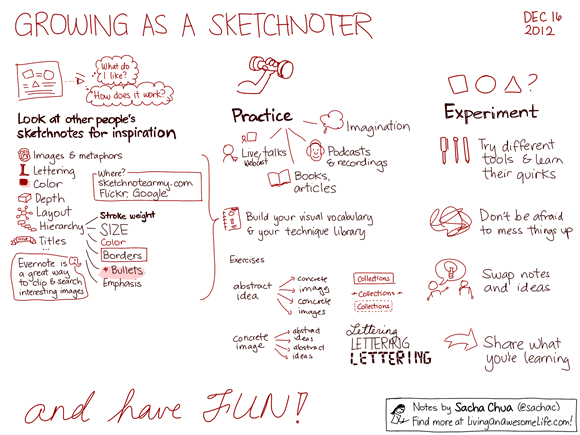 GROWING AS A SKETCHNOTER
DEC 16
2012
What do
I like?
How does it work?
Look at other people's
sketchnotes for inspiration
Images & metaphors
Lettering
Color
Depth
Layout
Hierarchy
Titles
...
Where?
sketchnotearmy.com
Flickr, Google
Stroke weight
SIZE
Color
Borders
* Bullets
Emphasis
Evernote is
a great way
to clip & search
interesting images
Practice
Imagination
Live talks
Webcast
Podcasts
& recordings
Books,
articles
Build your visual vocabulary
& your technique library
Exercises
abstract
idea
concrete
image
concrete
images
Collections
Collections
Collections
concrete
image
abstract
ideas
abstract
ideas
Lettering
LETTERING
LETTERING
Experiment
?
Try different
tools & learn
their quirks
Don't be afraid
to mess things up
Swap notes
and ideas
Share what
you're learning
and have FUN!
Notes by Sacha Chua (@sachac)
Find more at LivingAnAwesomeLife.com!